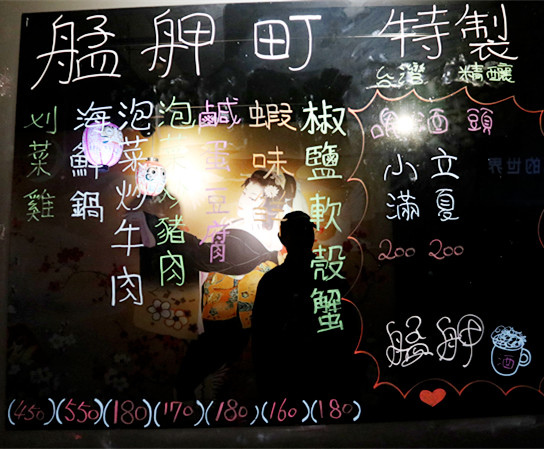 艋舺町 特製
台灣 精釀
啤酒頭
立夏
小滿
200 200
艋舺
酒
椒鹽軟殼蟹
蝦味
鹹蛋豆腐
泡菜炒豬肉
泡菜炒牛肉
海鮮鍋
刈菜雞
(450) (550) (180) (170) (180) (160) (180)